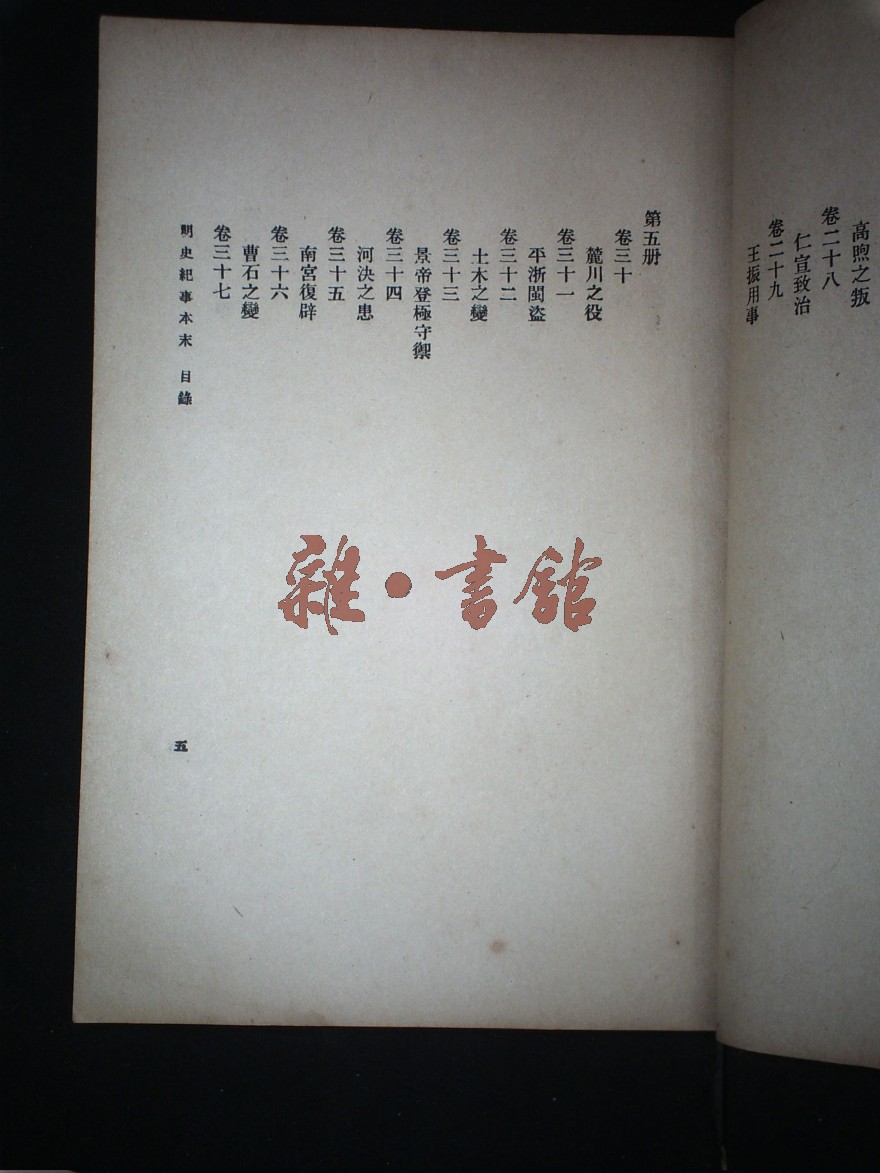 高煦之叛
卷二十八
仁宣致治
卷二十九
王振用事
第五册
卷三十
麓川之役
卷三十一
平浙閩盜
卷三十二
土木之變
卷三十三
景帝登極守禦
卷三十四
河決之患
卷三十五
南宮復辟
卷三十六
曹石之變
卷三十七
明史紀事本末 目錄
五
雜·書館